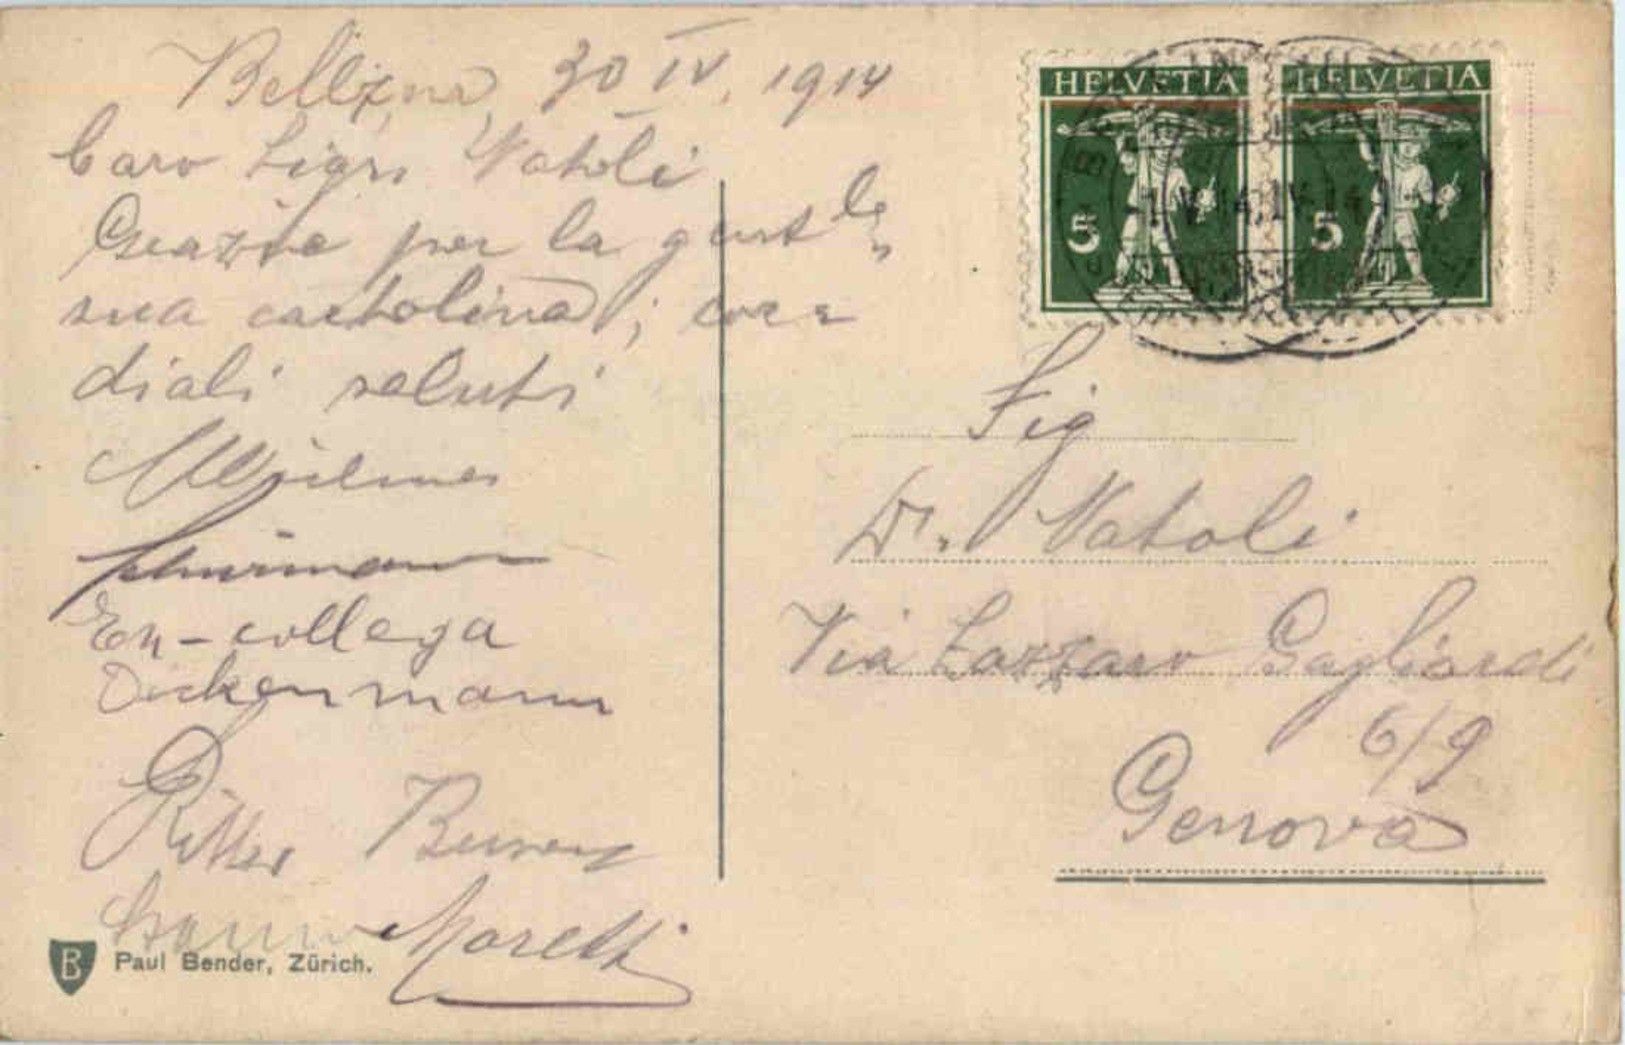 Bellizna, 30 IV. 1914
Caro Sigr. Natoli
Grazie per la
sua cartolina; cor=
diali saluti
Schürmann
Ex-collega
Dickenmann
Ritter
Moretti
Paul Bender, Zürich.
B
HELVETIA
5
HELVETIA
5
Sig
Dr. Natoli
Via Lazzaro Gagliardi
6/9
Genova